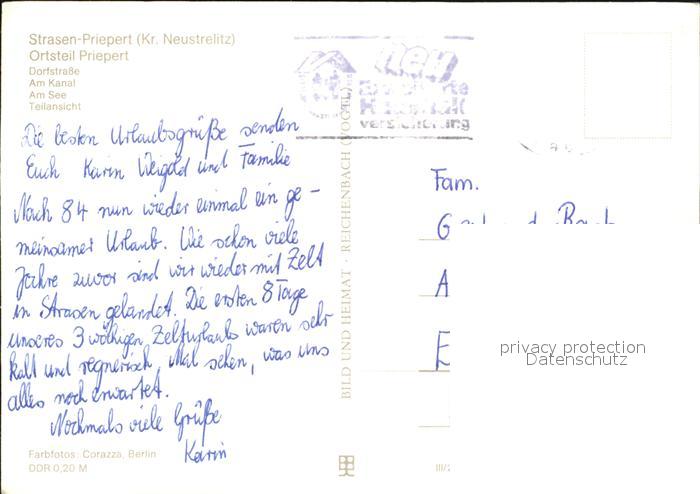 Strasen-Priepert (Kr. Neustrelitz)
Ortsteil Priepert
Dorfstraße
Am Kanal
Am See
Teilansicht
Die besten Urlaubsgrüße senden
Euch Karin Weigold und Familie
Nach 84 nun wieder einmal ein ge-
meinsamer Urlaub. Wie schon viele
Jahre zuvor sind wir wieder mit Zelt
in Strasen gelandet. Die ersten 8 Tage
unseres 3 wöchigen Zelturlaubs waren sehr
kalt und regnerisch. Mal sehen, was uns
alles noch erwartet.
Nochmals viele Grüße
Karin
Farbfotos: Corazza, Berlin
DDR 0,20 M
BILD UND HEIMAT · REICHENBACH (VOGTL)
III/
Neu
Erweiterte
Haushalt
versicherung
Fam.
G
A
E
privacy protection
Datenschutz